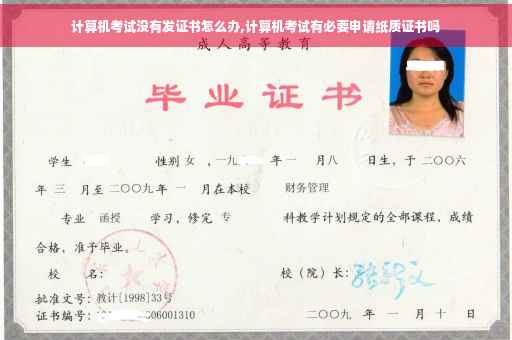 计算机考试没有发证书怎么办,计算机考试有必要申请纸质证书吗
成人高等教育
毕业证书
学生 性别 女 ,一九 年一 月八 日生,于二〇〇六
年 三 月至二〇〇九年 一 月在本校 财务管理
专业 函授 学习,修完 专 科教学计划规定的全部课程,成绩
合格,准予毕业。
校 名: 校(院)长:
批准文号:教计[1998]33号
证书编号: 06001310 二〇〇九 年 一 月 十 日